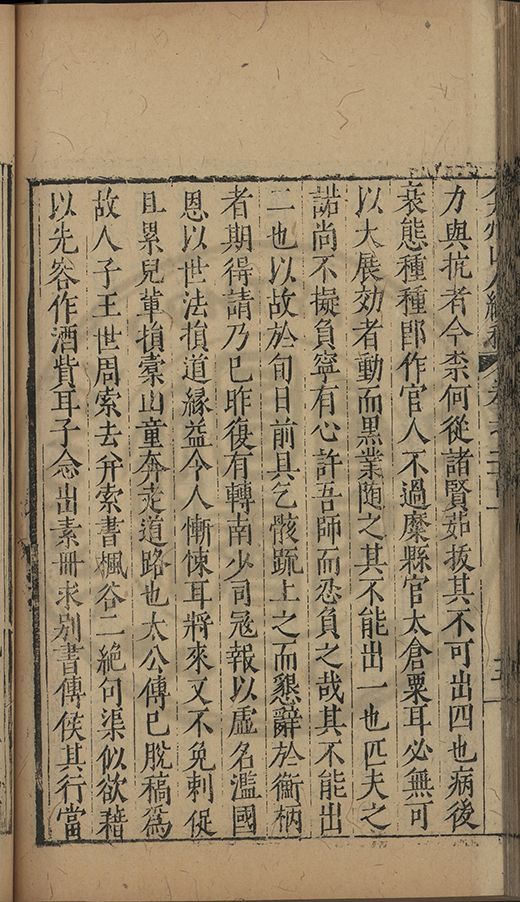 力與抗者今柰何從諸賢茹拔其不可出四也病後
衰態種種即作官人不過糜縣官太倉粟耳必無可
以大展効者動而黒業随之其不能出一也匹夫之
諾尚不擬負寧有心許吾師而忍負之哉其不能出
二也以故於旬日前具乞骸䟽上之而懇辭於衡柄
者期得請乃已昨復有轉南少司冦報以虛名濫國
恩以世法損道緣益令人慚悚耳將來又不免剌促
且累兒軰損橐山童奔走道路也太公傳已脫稿爲
故人子王世周索去并索書楓谷二絶句渠似欲藉
以先容作酒貲耳子念出素冊求別書傳俟其行當